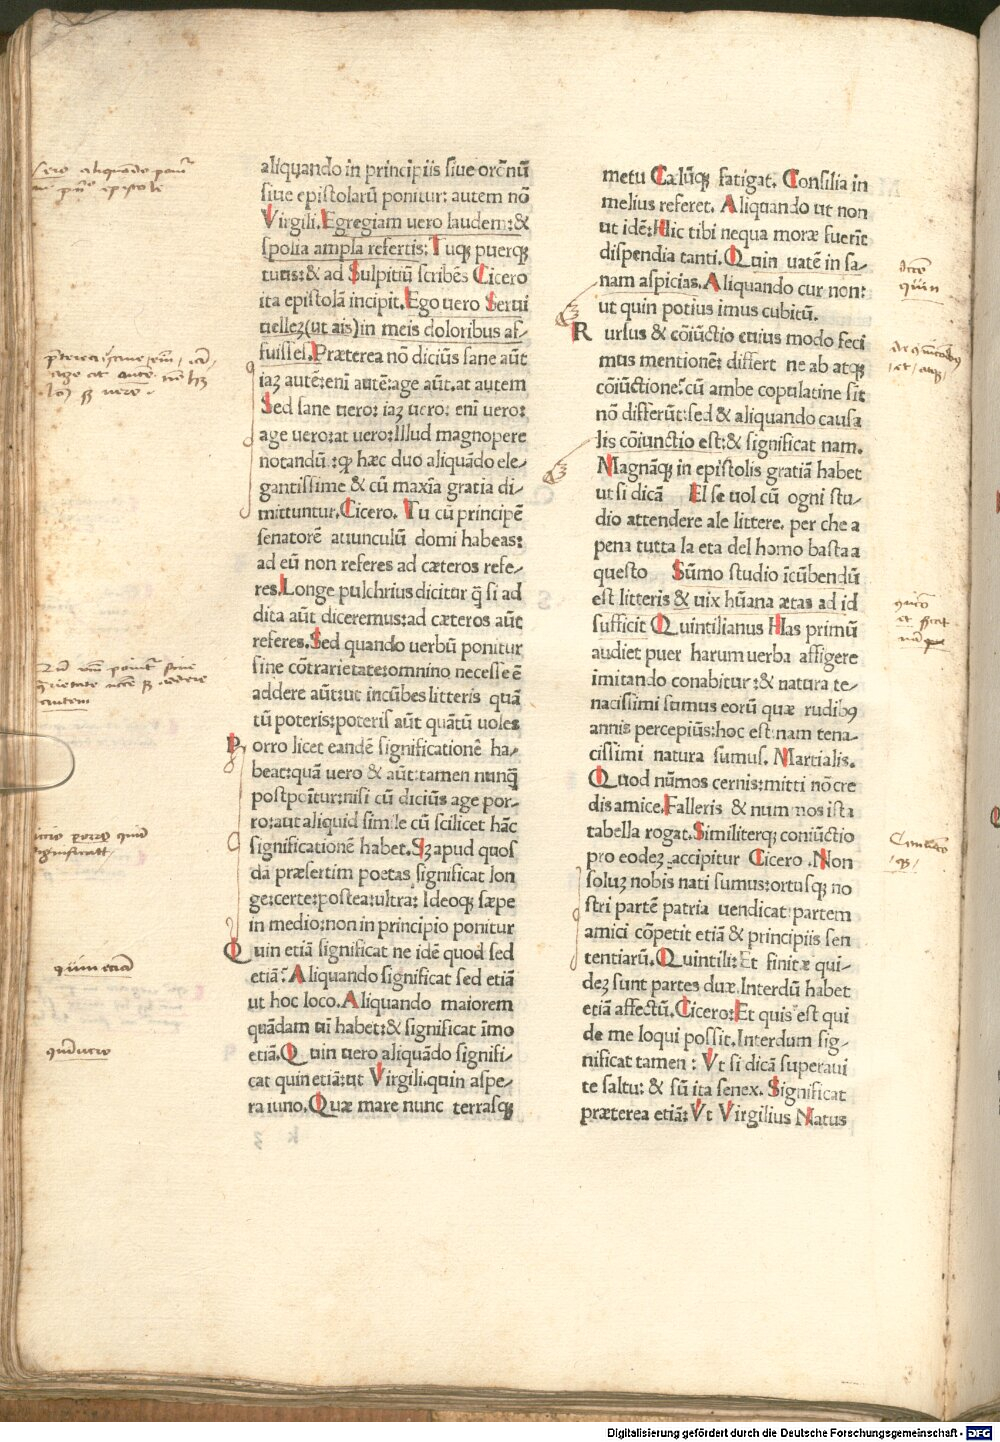 aliquando in principiis siue orōnū
siue epistolarū ponitur: autem nō
Virgili. Egregiam uero laudem: &
spolia ampla refertis: Tuqꝫ puerqꝫ
tuus: & ad Sulpitiū scribēs Cicero
ita epistolā incipit. Ego uero Serui
uellez (ut ais) in meis doloribus af-
fuisses. Præterea nō diciūs sane aūt
iaꝫ autē: eni autē: age aūt. at autem
Sed sane uero: iaꝫ uero: eni uero:
age uero: at uero: Illud magnopere
notandū: ꝙ hæc duo aliquādo ele-
gantissime & cū maxīa gratia di-
mittuntur. Cicero. Tu cū principē
senatorē auunculū domi habeas:
ad eū non referes ad cæteros refe-
res. Longe pulchrius dicitur q̄ si ad
dita aūt diceremus: ad cæteros aūt
referes. Sed quando uerbū ponitur
sine cōtrarietate: omnino necesse ē
addere aūt: ut incūbes litteris quā
tū poteris: poteris aūt quātū uoles
Porro licet eandē significationē ha-
beat: quā uero & aūt: tamen nunq̄
postpoītur: nisi cū diciūs age por-
ro: aut aliquid simile cū scilicet hāc
significationē habet. Sꝫ apud quos
dā præsertim poetas significat lon
ge: certe: postea: ultra: Ideoqꝫ sæpe
in medio: non in principio ponitur
Quin etiā significat ne idē quod sed
etiā: Aliquando significat sed etiā
ut hoc loco. Aliquando maiorem
quādam uī habet: & significat īmo
etiā. Quin uero aliquādo signifi-
cat quin etiā: ut Virgili. quin aspe-
ra iuno. Quæ mare nunc terrasqꝫ
metu Cælūqꝫ fatigat. Consilia in
melius referet. Aliquando ut non
ut idē: Hic tibi nequa moræ fuerīt
dispendia tanti. Quin uatē in sa-
nam aspicias. Aliquando cur non:
ut quin potius imus cubitū.
Rursus & cōiūctio cuius modo feci
mus mentionē: differt ne ab atqꝫ
cōiūctione: cū ambe copulatine sīt
nō differūt: sed & aliquando causa
lis cōiunctio est: & significat nam.
Magnāqꝫ in epistolis gratiā habet
ut si dicā El se uol cū ogni stu-
dio attendere ale littere. per che a
pena tutta la eta del homo basta a
questo Sūmo studio īcūbendū
est litteris & uix hūana ætas ad id
sufficit Quintilianus Has primū
audiet puer harum uerba affigere
imitando conabitur: & natura te-
nacissimi sumus eorū quæ rudibꝯ
annis percepiūs: hoc est: nam tena-
cissimi natura sumus. Martialis.
Quod nūmos cernis: mitti nō cre
dis amice. Falleris & num nos ista
tabella rogat. Similiterqꝫ coniūctio
pro eodeꝫ accipitur Cicero. Non
soluꝫ nobis nati sumus: ortusqꝫ no
stri partē patria uendicat partem
amici cōpetit etiā & principiis sen
tentiarū. Quintili: Et finitæ qui-
deꝫ sunt partes duæ. Interdū habet
etiā affectū. Cicero: Et quis est qui
de me loqui possit. Interdum sig-
nificat tamen: Vt si dicā superaui
te saltu: & sū ita senex. Significat
præterea etiā: Vt Virgilius Natus
quin etiā
Digitalisierung gefördert durch die Deutsche Forschungsgemeinschaft - DFG